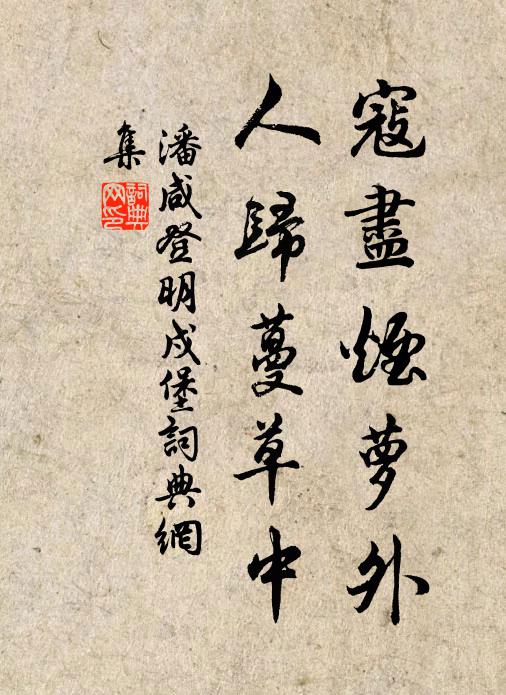 寇盡煙蘿外
人歸蔓草中
潘咸登明戍堡詞典網
集
詞典網印